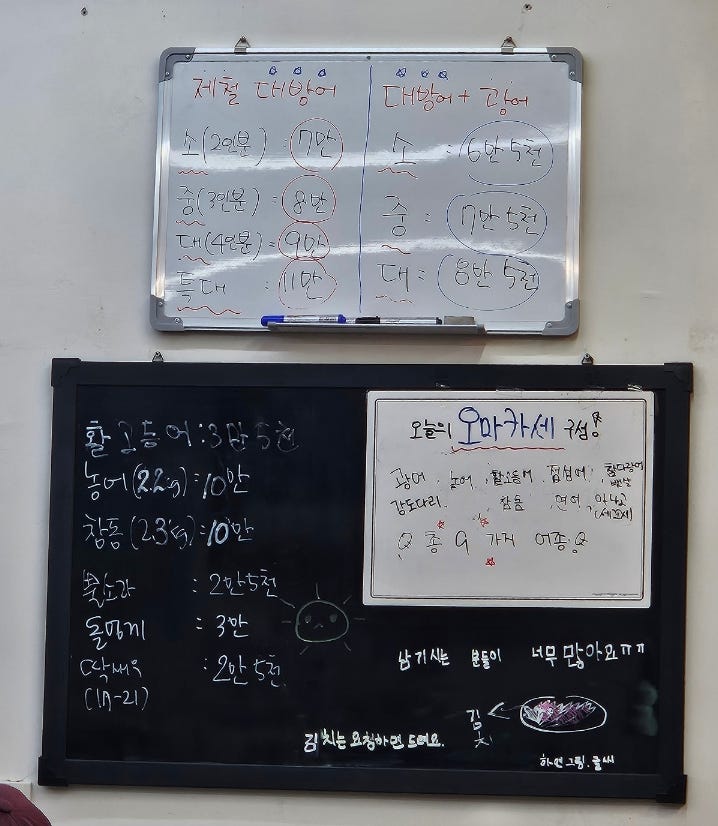 제철 대방어
소(2인분) = 7만
중(3인분) = 8만
대(4인분) = 9만
특대 : 11만
대방어 + 광어
소 : 6만 5천
중 : 7만 5천
대 : 8만 5천
활고등어 : 3만 5천
농어(2.2kg) = 10만
참돔(2.3kg) = 10만
뿔소라 : 2만 5천
돌멍게 : 3만
딱새우 : 2만 5천
오늘의 오마카세 구성!
광어 농어 활고등어 점성어 참다랑어 뱃살
강도다리 참돔 연어
총 9가지 어종
남기시는 분들이 너무 많아요ㅠㅠ
김치
김치는 요청하면 드려요.
하연그림.글씨